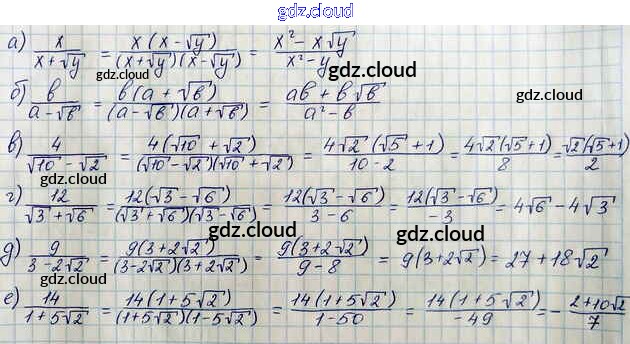 gdz.cloud
а) x/(x + √y) = x(x - √y)/((x + √y)(x - √y)) = (x² - x√y)/(x² - y)
gdz.cloud
б) в/(a - √в) = в(a + √в)/((a - √в)(a + √в)) = (aв + в√в)/(a² - в)
gdz.cloud
gdz.cloud
в) 4/(√10 - √2) = 4(√10 + √2)/((√10 - √2)(√10 + √2)) = 4√2(√5 + 1)/(10 - 2) = 4√2(√5+1)/8 = √2(√5+1)/2
gdz.cloud
gdz.cloud
г) 12/(√3 + √6) = 12(√3 - √6)/((√3 + √6)(√3 - √6)) = 12(√3 - √6)/(3 - 6) = 12(√3 - √6)/(-3) = 4√6 - 4√3
gdz.cloud
gdz.cloud
д) 9/(3 - 2√2) = 9(3 + 2√2)/((3 - 2√2)(3 + 2√2)) = 9(3 + 2√2)/(9 - 8) = 9(3 + 2√2) = 27 + 18√2
gdz.cloud
gdz.cloud
е) 14/(1 + 5√2) = 14(1 + 5√2)/((1 + 5√2)(1 - 5√2)) = 14(1 + 5√2)/(1 - 50) = 14(1 + 5√2)/(-49) = - (2 + 10√2)/7
gdz.cloud